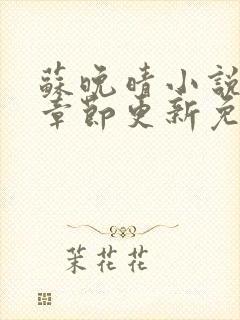 蘇晚晴小說
章節更新免
茉花花